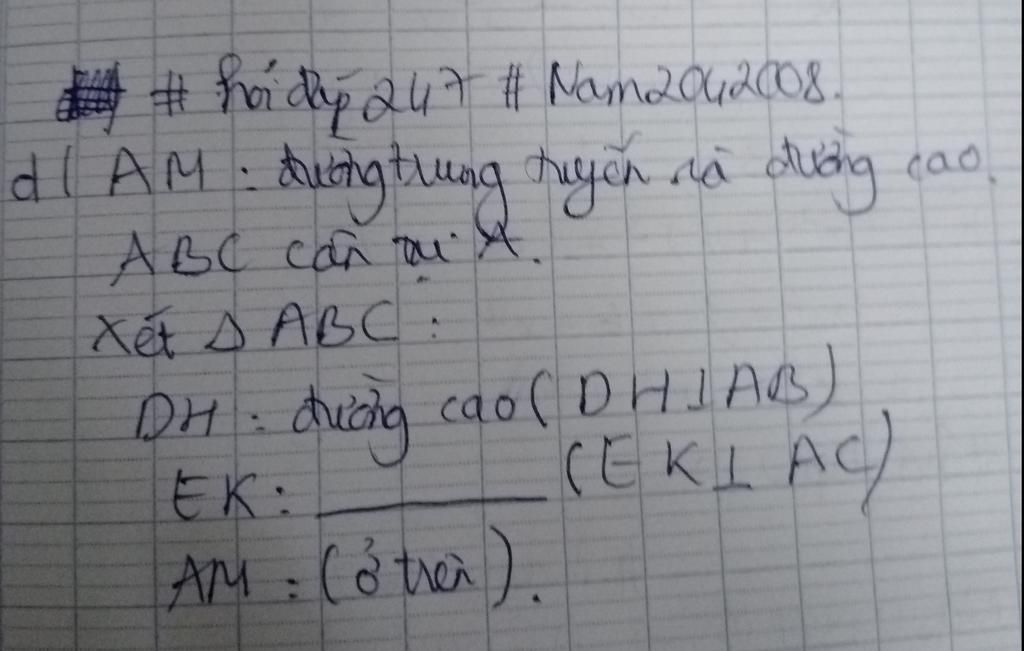 # hỏi đáp 247 # Nam2042008.
d/ AM : đường trung tuyến và đường cao.
ABC cân tại A.
Xét Δ ABC :
DH : đường cao ( DH ⊥ AB )
EK : ________ ( EK ⊥ AC )
AM : (ở trên).